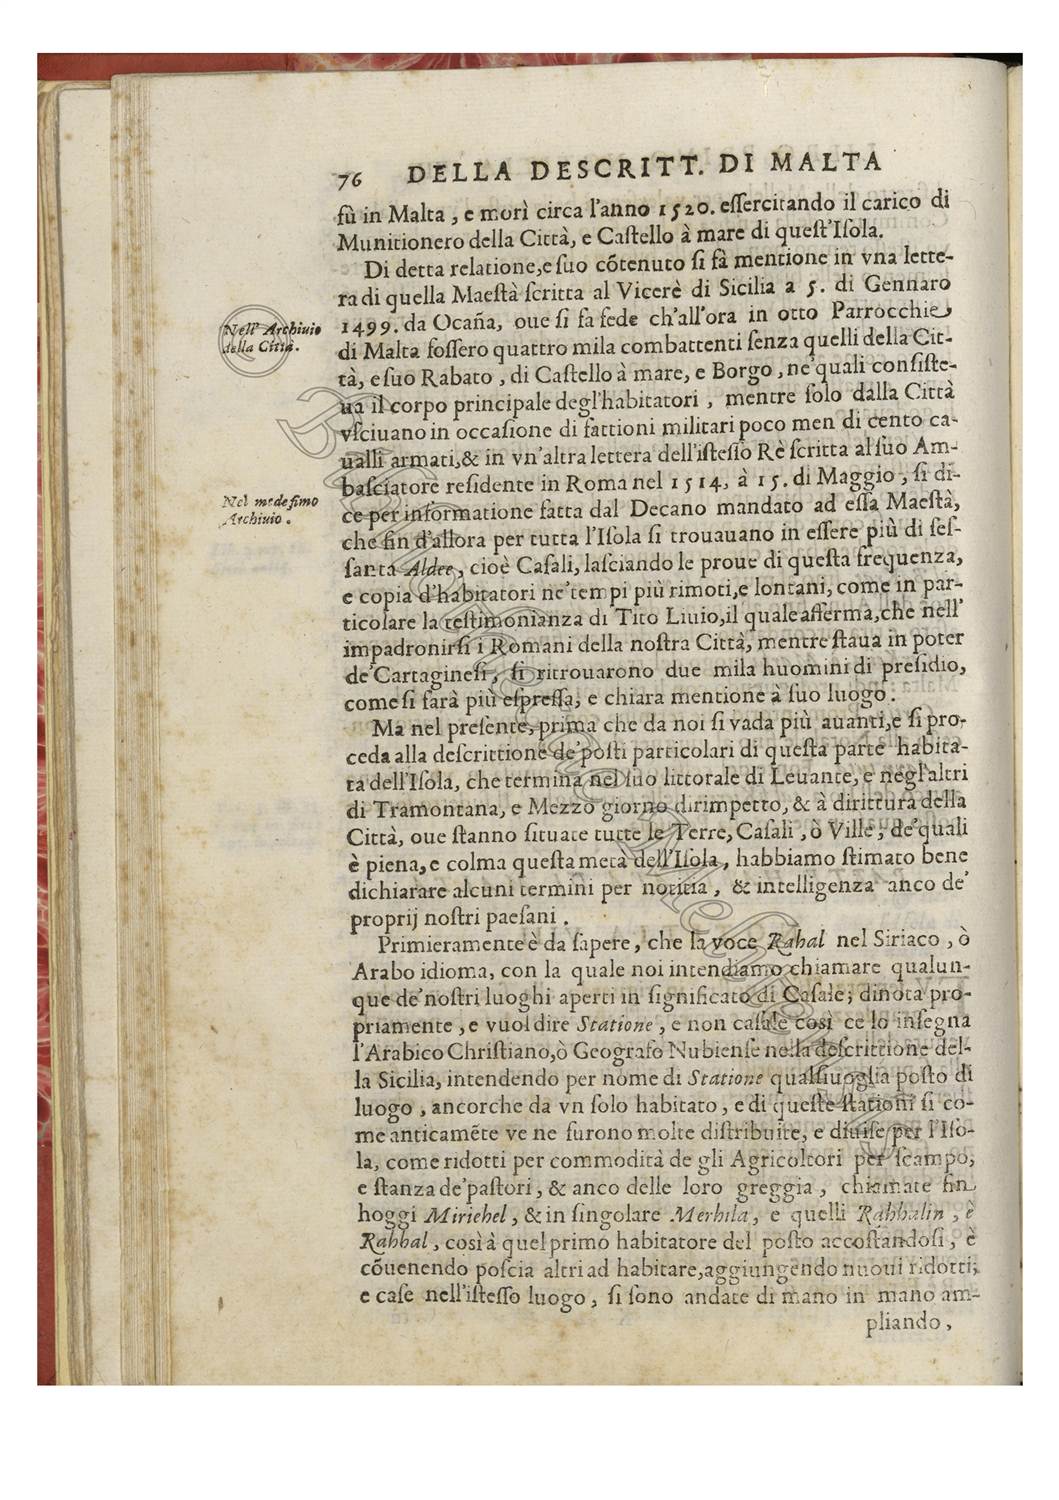 76 DELLA DESCRITT. DI MALTA
fù in Malta, e morì circa l'anno 1520. eſſercitando il carico di
Munitionero della Città, e Caſtello à mare di queſt'Iſola.
Di detta relatione,e ſuo cõtenuto ſi fà mentione in vna lette-
ra di quella Maeſtà ſcritta al Vicerè di Sicilia a 5. di Gennaro
Nell' Archiuio
della Città.
1499. da Ocaña, oue ſi fa fede ch'all'ora in otto Parrocchie
di Malta foſſero quattro mila combattenti ſenza quelli della Cit-
tà, e ſuo Rabato, di Caſtello à mare, e Borgo, ne'quali conſiſte-
ua il corpo principale degl'habitatori, mentre ſolo dalla Città
vſciuano in occaſione di fattioni militari poco men di cento ca-
ualli armati,& in vn'altra lettera dell'iſteſſo Rè ſcritta al ſuo Am-
baſciatore reſidente in Roma nel 1514, à 15. di Maggio, ſi di-
Nel medeſimo
Archiuio.
ce per informatione fatta dal Decano mandato ad eſſa Maeſtà,
che fin d'allora per tutta l'Iſola ſi trouauano in eſſere più di ſeſ-
ſanta Aldee, cioè Caſali, laſciando le proue di queſta frequenza,
e copia d'habitatori ne'tempi più rimoti,e lontani, come in par-
ticolare la teſtimonianza di Tito Liuio,il quale afferma,che nell'
impadronirſi i Romani della noſtra Città, mentre ſtaua in poter
de'Cartagineſi, ſi ritrouarono due mila huomini di preſidio,
come ſi farà più eſpreſſa, e chiara mentione à ſuo luogo.
Ma nel preſente, prima che da noi ſi vada più auanti,e ſi pro-
ceda alla deſcrittione de'poſti particolari di queſta parte habita-
ta dell'Iſola, che termina nel ſuo littorale di Leuante, e negl'altri
di Tramontana, e Mezzo giorno dirimpetto, & à dirittura della
Città, oue ſtanno ſituate tutte le Terre, Caſali, ò Ville, de'quali
è piena, e colma queſta metà dell'Iſola, habbiamo ſtimato bene
dichiarare alcuni termini per notitia, & intelligenza anco de'
proprij noſtri paeſani.
Primieramente è da ſapere, che la voce Rahal nel Siriaco, ò
Arabo idioma, con la quale noi intendiamo chiamare qualun-
que de'noſtri luoghi aperti in ſignificato di Caſale; dinota pro-
priamente, e vuol dire Statione, e non caſale così ce lo inſegna
l'Arabico Chriſtiano,ò Geografo Nubienſe nella deſcrittione del-
la Sicilia, intendendo per nome di Statione qualſiuoglia poſto di
luogo, ancorche da vn ſolo habitato, e di queſte ſtationi ſi co-
me anticamẽte ve ne furono molte diſtribuite, e diuiſe per l'Iſo-
la, come ridotti per commodità de gli Agricoltori per ſcampo,
e ſtanza de'paſtori, & anco delle loro greggia, chiamate fin
hoggi Miriehel, & in ſingolare Merhila, e quelli Rahhalin, è
Rahhal, così à quel primo habitatore del poſto accoſtandoſi, è
cõuenendo poſcia altri ad habitare,aggiungendo nuoui ridotti,
e caſe nell'iſteſſo luogo, ſi ſono andate di mano in mano am-
pliando,